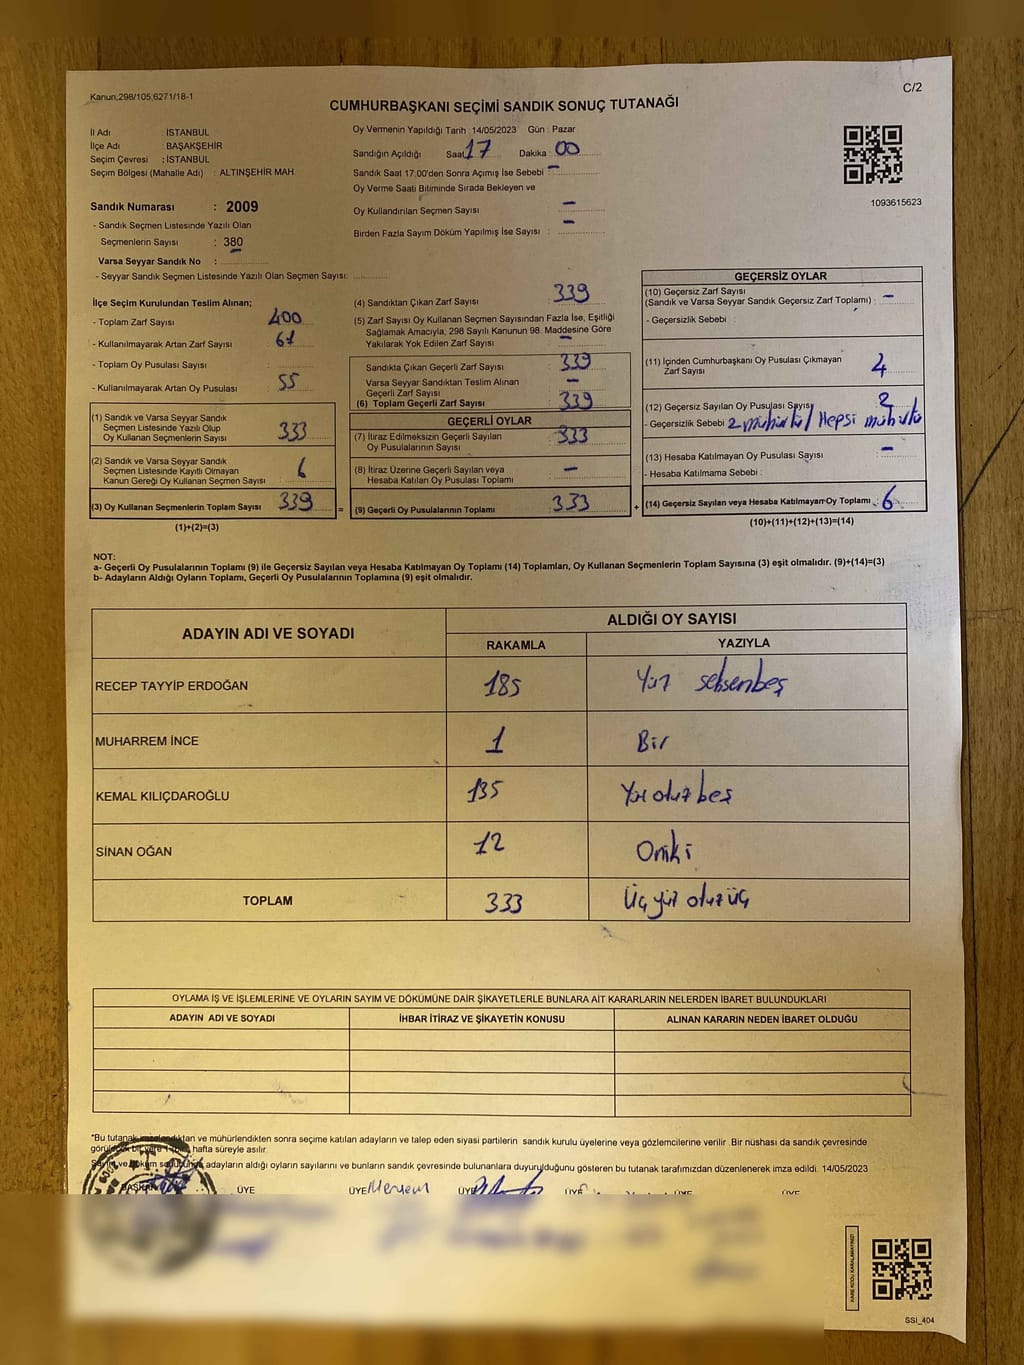 Kanun,298/105,6271/18-1
C/2
CUMHURBAŞKANI SEÇİMİ SANDIK SONUÇ TUTANAĞI
İl Adı : İSTANBUL
İlçe Adı : BAŞAKŞEHİR
Seçim Çevresi : İSTANBUL
Seçim Bölgesi (Mahalle Adı) : ALTINŞEHİR MAH.
Sandık Numarası : 2009
- Sandık Seçmen Listesinde Yazılı Olan
Seçmenlerin Sayısı : 380
Varsa Seyyar Sandık No :
- Seyyar Sandık Seçmen Listesinde Yazılı Olan Seçmen Sayısı:
Oy Vermenin Yapıldığı Tarih : 14/05/2023 Gün : Pazar
Sandığın Açıldığı Saat 17 Dakika : 00
Sandık Saat 17.00'den Sonra Açımış İse Sebebi : -
Oy Verme Saati Bitiminde Sırada Bekleyen ve
Oy Kullandırılan Seçmen Sayısı -
Birden Fazla Sayım Döküm Yapılmış İse Sayısı : -
1093615623
İlçe Seçim Kurulundan Teslim Alınan;
- Toplam Zarf Sayısı : 400
- Kullanılmayarak Artan Zarf Sayısı : 61
- Toplam Oy Pusulası Sayısı :
- Kullanılmayarak Artan Oy Pusulası : 55
(1) Sandık ve Varsa Seyyar Sandık
Seçmen Listesinde Yazılı Olup
Oy Kullanan Seçmenlerin Sayısı : 333
(2) Sandık ve Varsa Seyyar Sandık
Seçmen Listesinde Kayıtlı Olmayan
Kanun Gereği Oy Kullanan Seçmen Sayısı : 6
(3) Oy Kullanan Seçmenlerin Toplam Sayısı : 339
(1)+(2)=(3)
=
(4) Sandıktan Çıkan Zarf Sayısı : 339
(5) Zarf Sayısı Oy Kullanan Seçmen Sayısından Fazla İse, Eşitliği
Sağlamak Amacıyla; 298 Sayılı Kanunun 98. Maddesine Göre
Yakılarak Yok Edilen Zarf Sayısı : -
Sandıkta Çıkan Geçerli Zarf Sayısı : 339
Varsa Seyyar Sandıktan Teslim Alınan
Geçerli Zarf Sayısı : -
(6) Toplam Geçerli Zarf Sayısı : 339
GEÇERLİ OYLAR
(7) İtiraz Edilmeksizin Geçerli Sayılan
Oy Pusulasının Sayısı : 333
(8) İtiraz Üzerine Geçerli Sayılan veya
Hesaba Katılan Oy Pusulası Toplamı : -
(9) Geçerli Oy Pusulalarının Toplamı : 333
+
GEÇERSİZ OYLAR
(10) Geçersiz Zarf Sayısı
(Sandık ve Varsa Seyyar Sandık Geçersiz Zarf Toplamı) : -
- Geçersizlik Sebebi :
(11) İçinden Cumhurbaşkanı Oy Pusulası Çıkmayan
Zarf Sayısı : 4
(12) Geçersiz Sayılan Oy Pusulası Sayısı : 2
- Geçersizlik Sebebi 2 mühürlü / Hepsi mühürlü
(13) Hesaba Katılmayan Oy Pusulası Sayısı : -
- Hesaba Katılmama Sebebi :
(14) Geçersiz Sayılan veya Hesaba Katılmayan Oy Toplamı : 6
(10)+(11)+(12)+(13)=(14)
NOT:
a- Geçerli Oy Pusulalarının Toplamı (9) ile Geçersiz Sayılan veya Hesaba Katılmayan Oy Toplamı (14) Toplamları, Oy Kullanan Seçmenlerin Toplam Sayısına (3) eşit olmalıdır. (9)+(14)=(3)
b- Adayların Aldığı Oyların Toplamı, Geçerli Oy Pusulalarının Toplamına (9) eşit olmalıdır.
ADAYIN ADI VE SOYADI
ALDIĞI OY SAYISI
RAKAMLA YAZIYLA
RECEP TAYYİP ERDOĞAN 185 Yüz seksenbeş
MUHARREM İNCE 1 Bir
KEMAL KILIÇDAROĞLU 135 Yüz otuz beş
SİNAN OĞAN 12 Oniki
TOPLAM 333 Üç yüz otuz üç
OYLAMA İŞ VE İŞLEMLERİNE VE OYLARIN SAYIM VE DÖKÜMÜNE DAİR ŞİKAYETLERLE BUNLARA AİT KARARLARIN NELERDEN İBARET BULUNDUKLARI
ADAYIN ADI VE SOYADI İHBAR İTİRAZ VE ŞİKAYETİN KONUSU ALINAN KARARIN NEDEN İBARET OLDUĞU
"Bu tutanak imzalandıktan ve mühürlendikten sonra seçime katılan adayların ve talep eden siyasi partilerin sandık kurulu üyelerine veya gözlemcilerine verilir. Bir nüshası da sandık çevresinde
görülecek bir yere 1 hafta süreyle asılır.
Sayım ve döküm sonucunda adayların aldığı oyların sayılarını ve bunların sandık çevresinde bulunanlara duyurulduğunu gösteren bu tutanak tarafımızdan düzenlenerek imza edildi. 14/05/2023
BAŞKAN ÜYE ÜYE Meryem ÜYE ÜYE ÜYE ÜYE
KARE KODU KARALAMAYINIZ!
SSİ_404